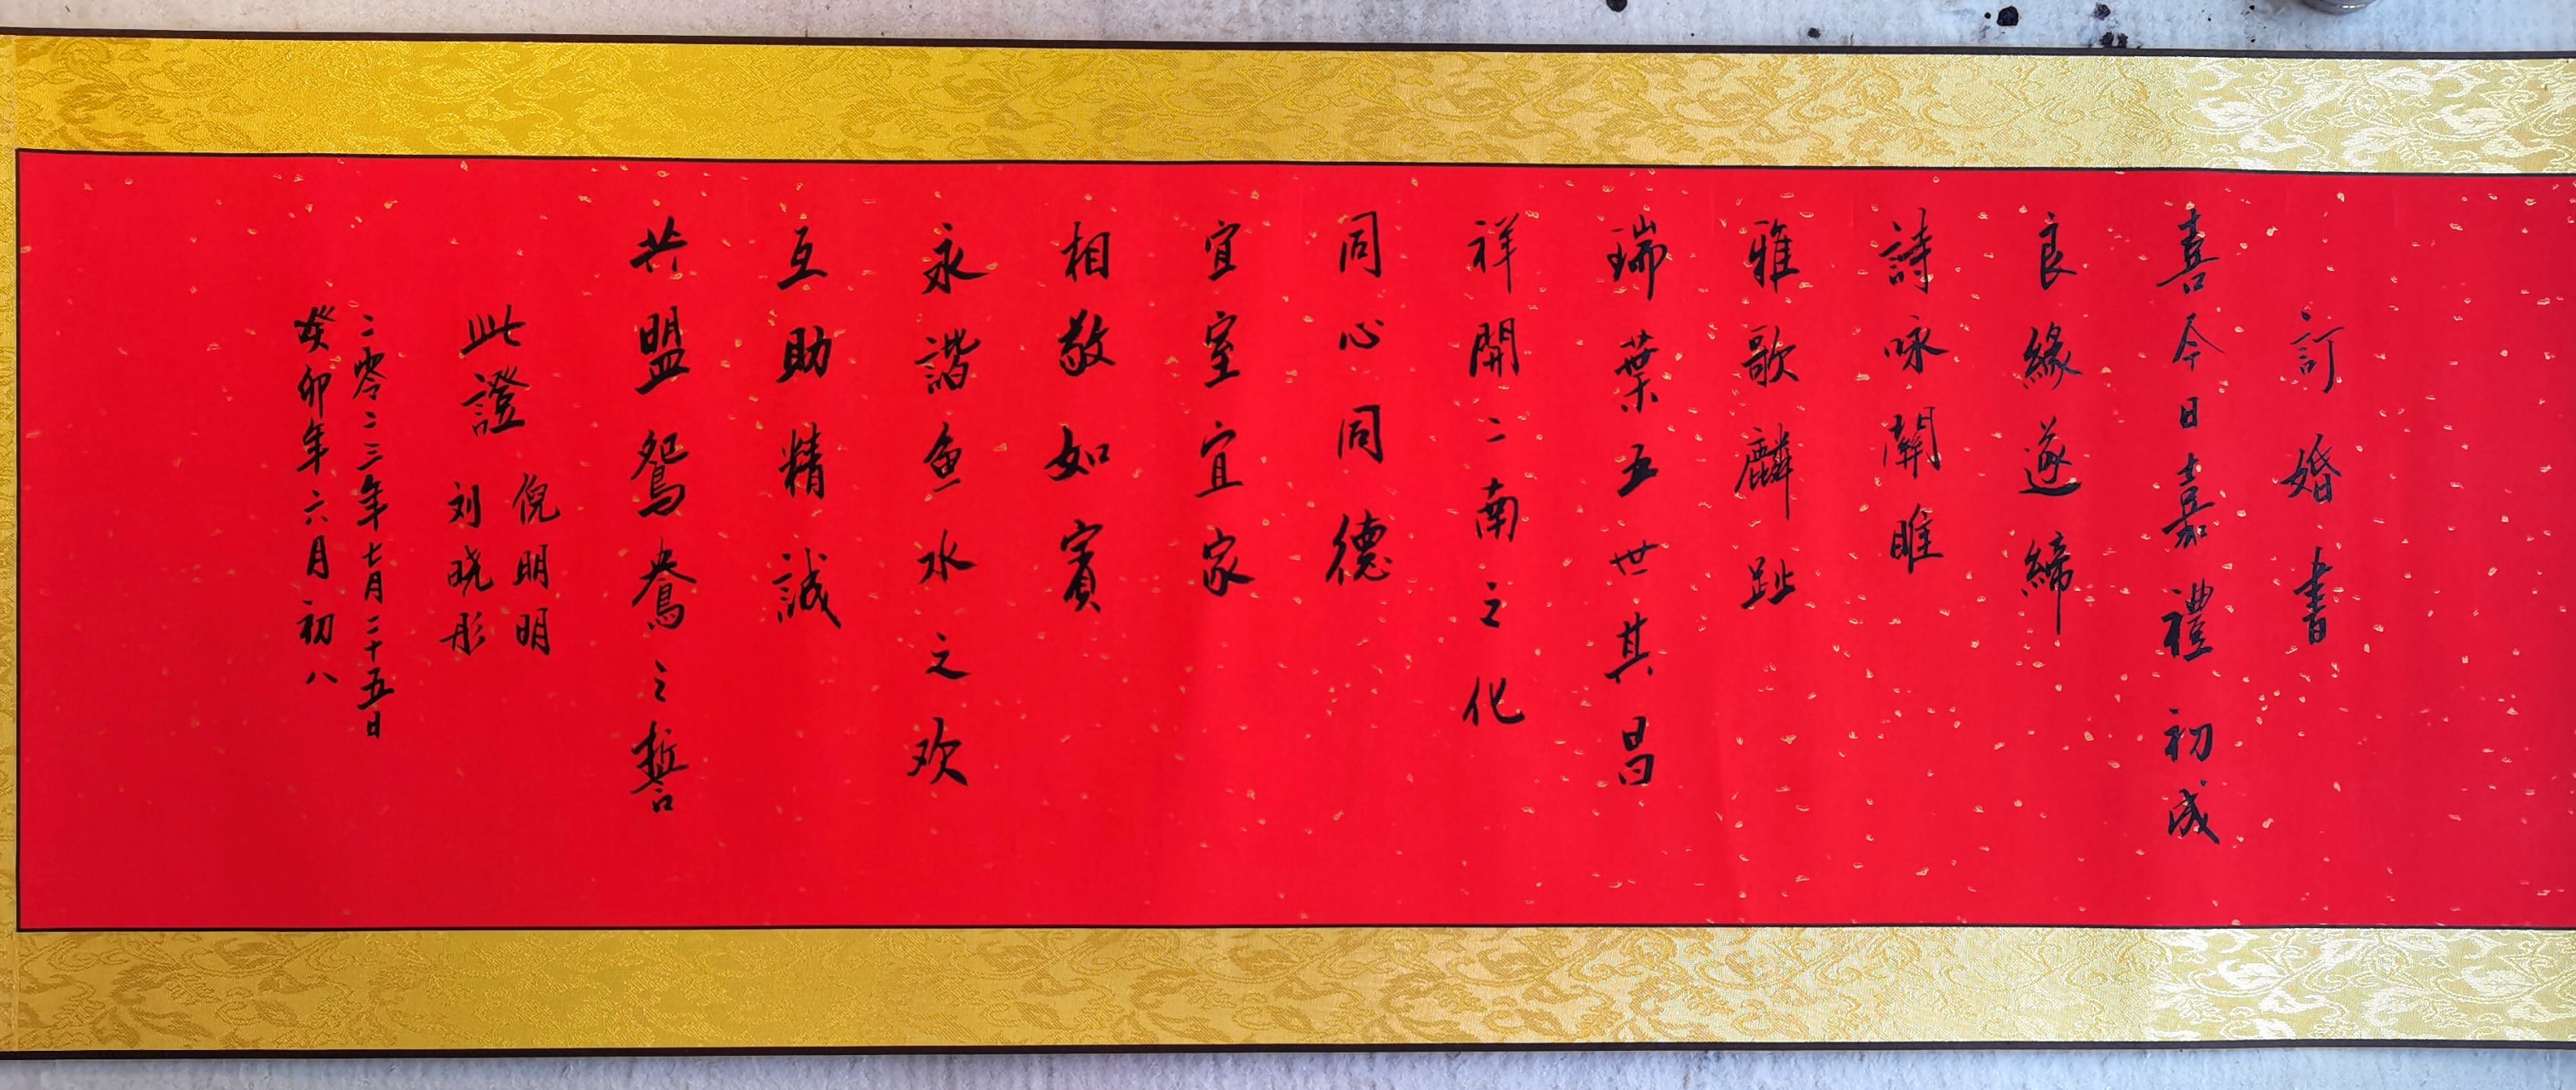 訂婚書
喜今日嘉禮初成
良緣遂締
詩咏關雎
雅歌麟趾
瑞葉五世其昌
祥開二南之化
同心同德
宜室宜家
相敬如賓
永諧鱼水之欢
互助精誠
共盟鴛鴦之誓
此證
倪明明
刘晓彤
二零二三年七月二十五日
癸卯年六月初八